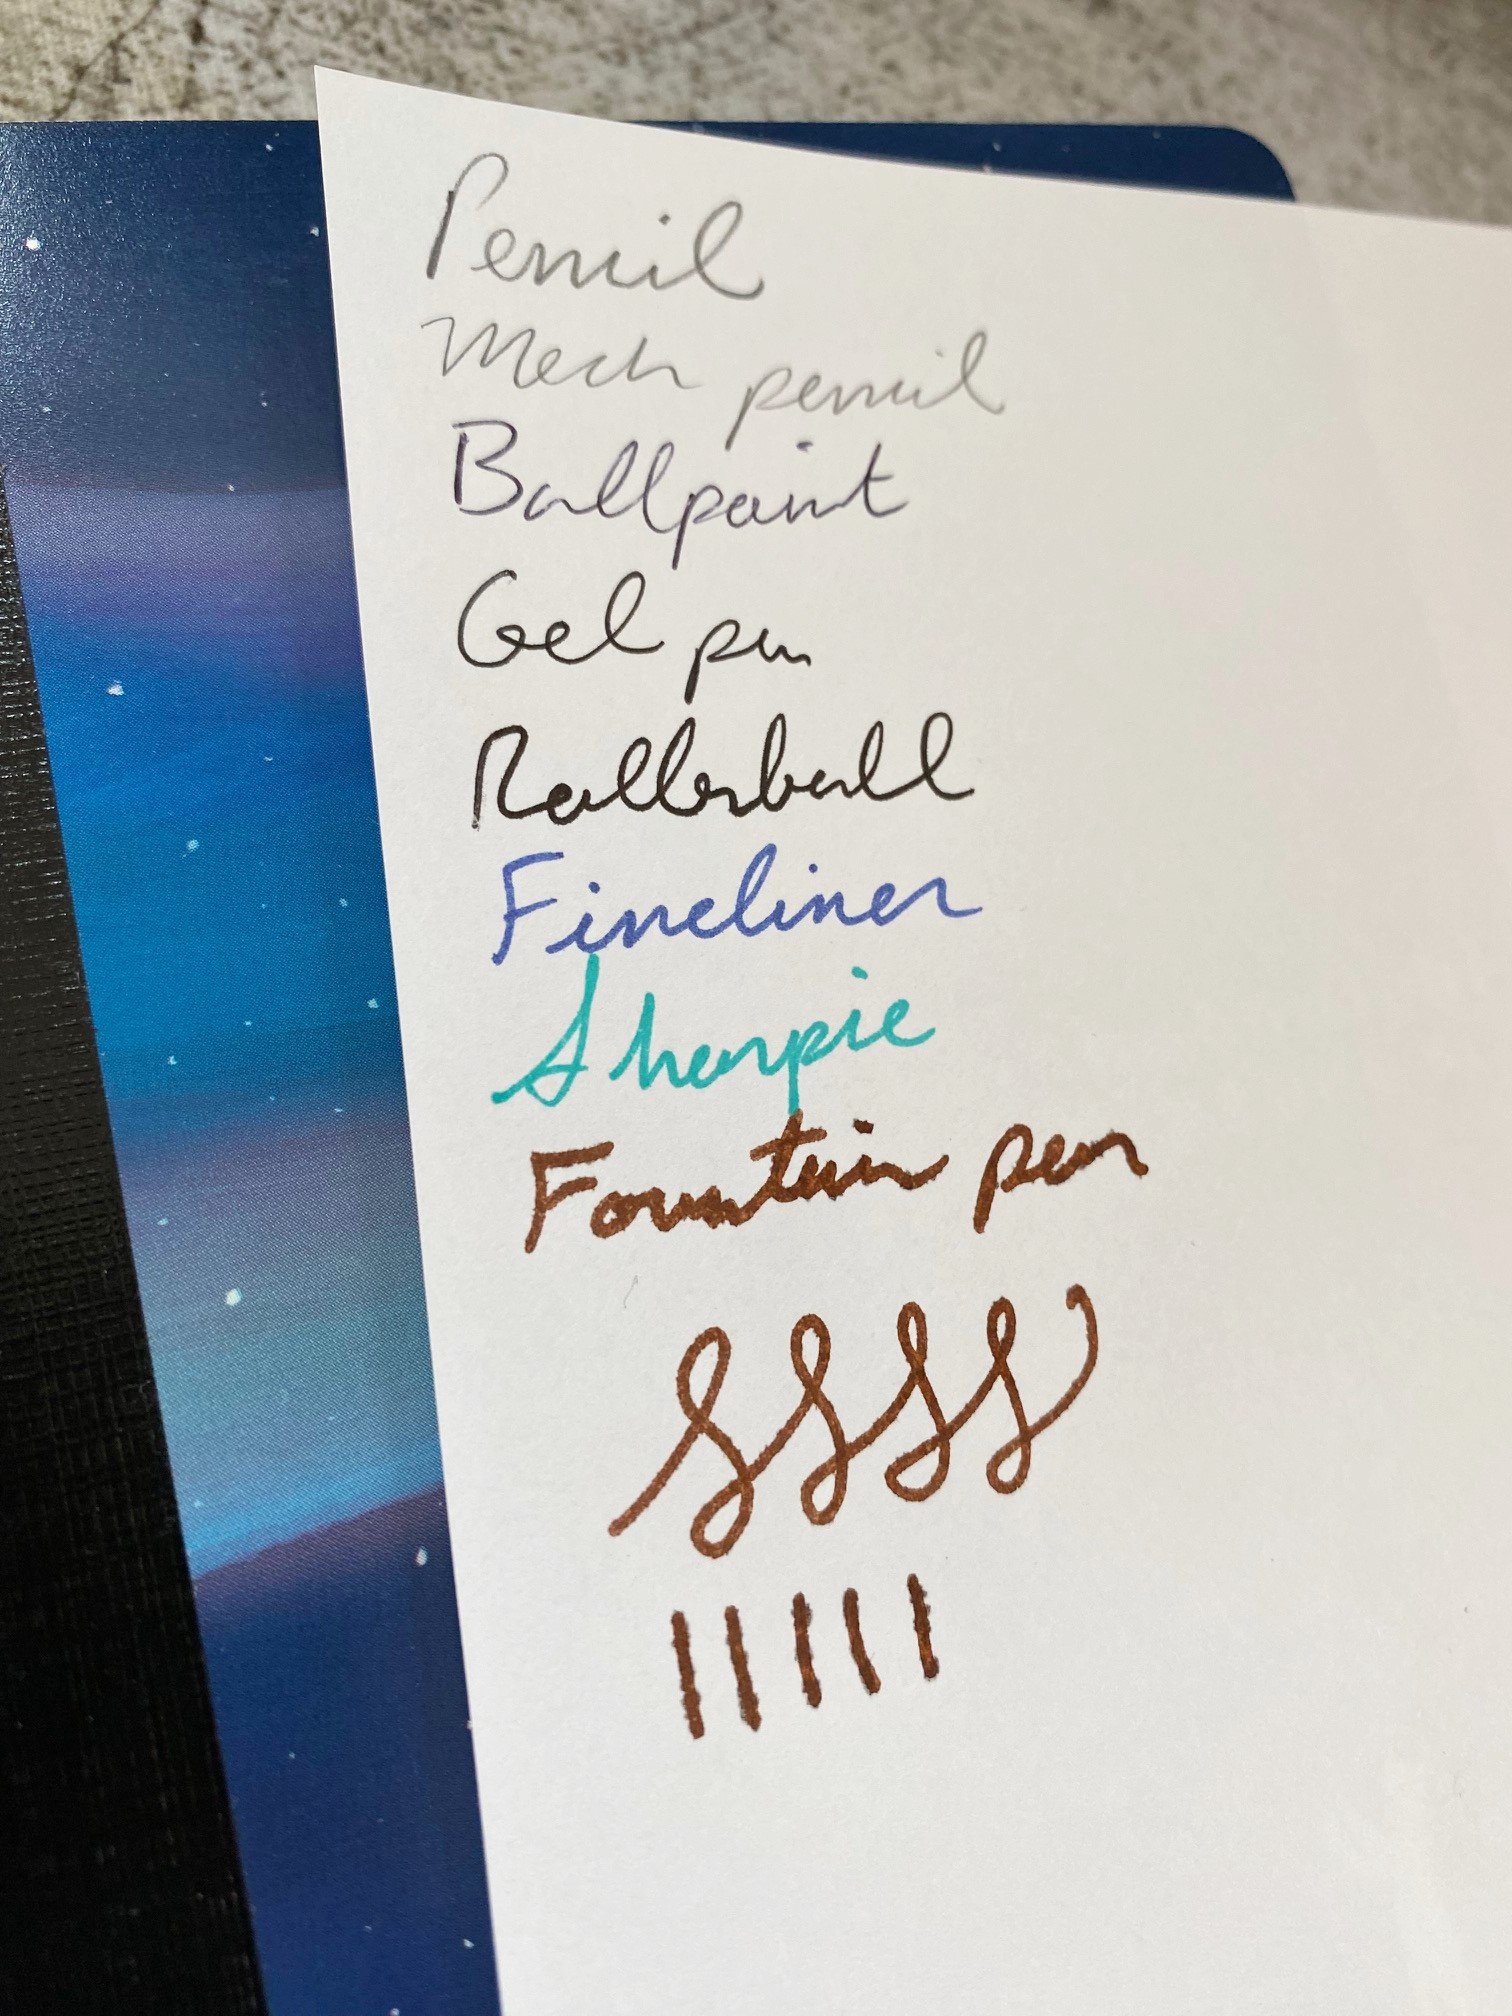 Pencil
Mech pencil
Ballpoint
Gel pen
Rollerball
Fineliner
Sharpie
Fountain pen